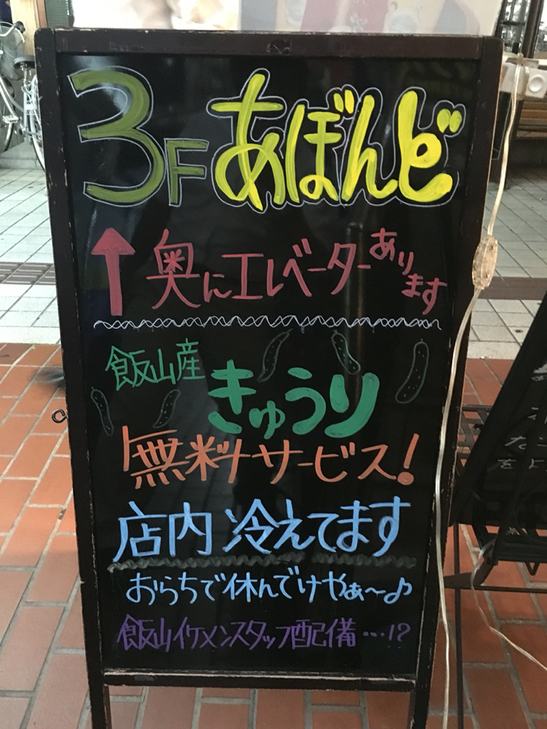 3F あぼんど
↑奥にエレベーターあります
飯山産
きゅうり
無料サービス!
店内 冷えてます
おらちで休んでけやぁ～♪
飯山イケメンスタッフ配備…!?